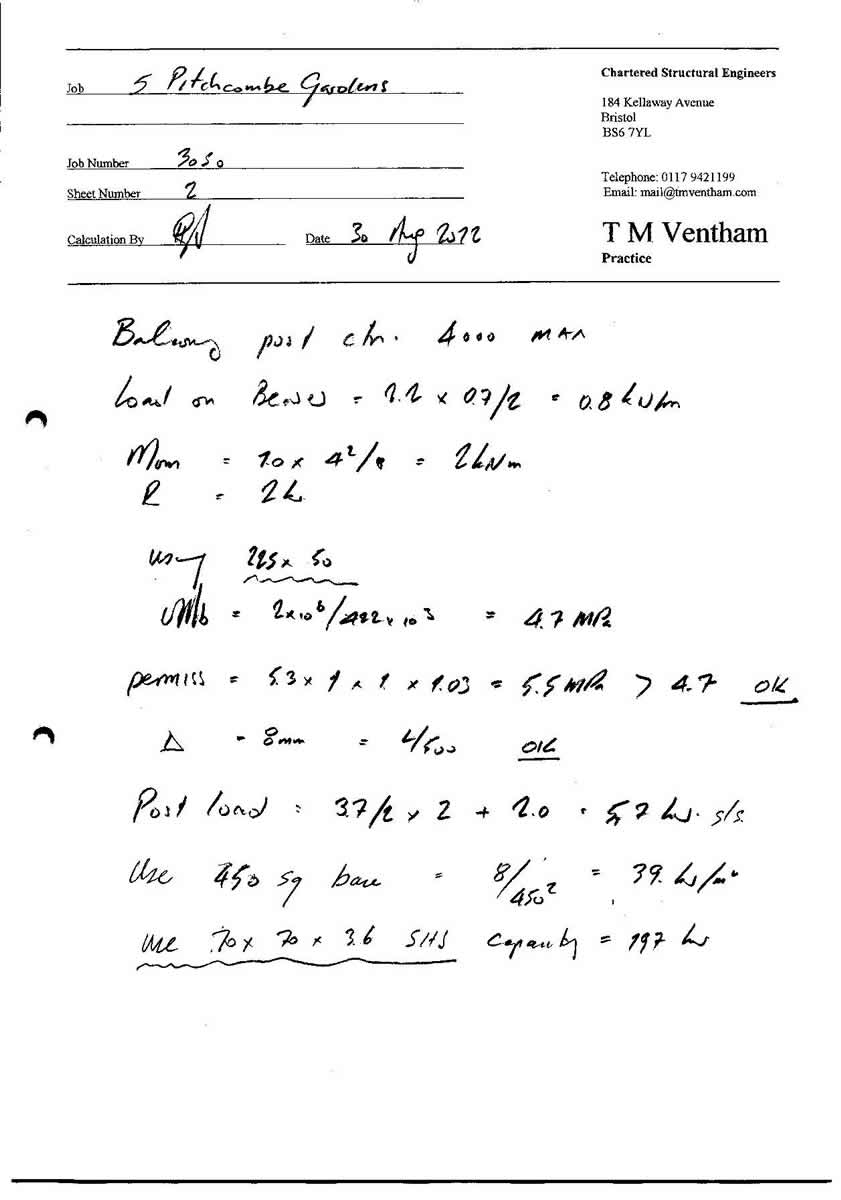 Chartered Structural Engineers
Job 5 Pitchcombe Gardens
184 Kellaway Avenue
Bristol
BS6 7YL
Job Number 3050
Telephone: 0117 9421199
Sheet Number 2
Email: mail@tmventham.com
Calculation By Date 30 Aug 2012
T M Ventham
Practice
Balcony post ctr. 4000 max
Load on = 2.2 × 0.7/2 = 0.8 kN/m
Mom = 1.0 × 4²/8 = 2 kNm
R = 2k
using 225 × 50
= 2×10⁶/422×10³ = 4.7 MPa
permiss = 5.3 × 1 × 1 × 1.03 = 5.5 MPa > 4.7 OK
Δ = 8mm = L/500 OK
Post load = 3.7/2 × 2 + 2.0 = 5.7 s/s.
Use 450 sq base = 8/450² = 39.
use 70 × 70 × 3.6 SHS capacity = 197